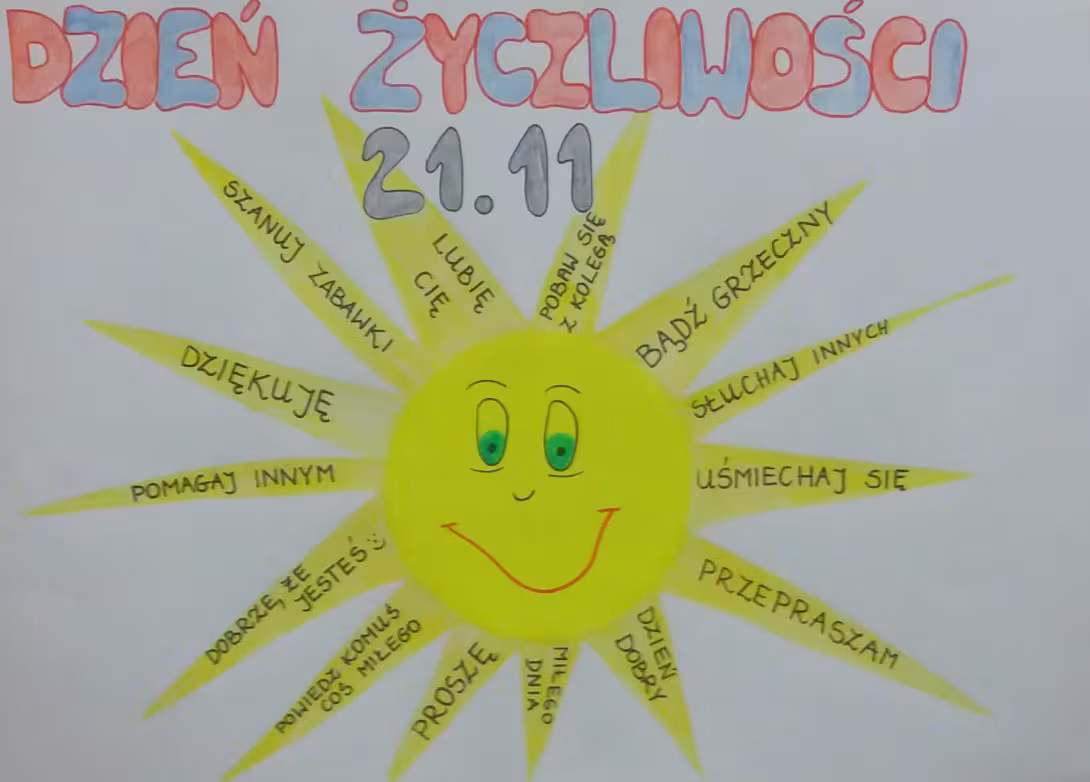 DZIEŃ ŻYCZLIWOŚCI
21.11
SZANUJ ZABAWKI
LUBIĘ
CIĘ
POBAW SIĘ
Z KOLEGĄ
BĄDŹ GRZECZNY
SŁUCHAJ INNYCH
UŚMIECHAJ SIĘ
PRZEPRASZAM
DZIEŃ
DOBRY
MIŁEGO
DNIA
PROSZĘ
POWIEDZ KOMUŚ
COŚ MIŁEGO
DOBRZĘ, ŻE
JESTEŚ :)
POMAGAJ INNYM
DZIĘKUJĘ